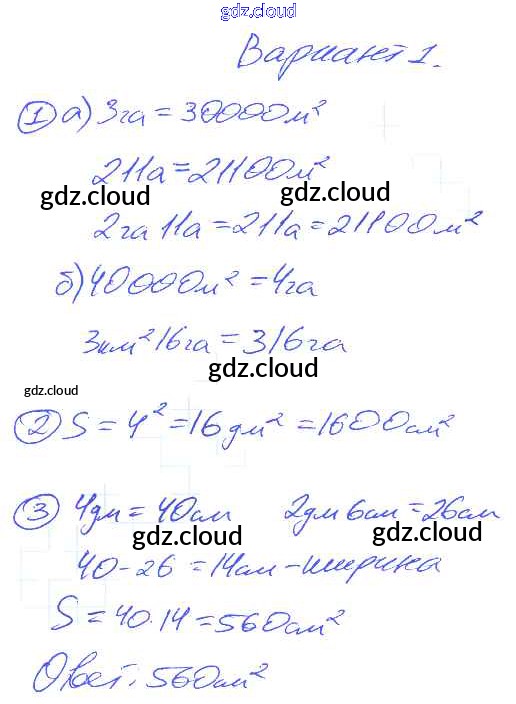 gdz.cloud
gdz.cloud
Вариант 1.
① а) 3га = 30000м²
211а = 21100м²
gdz.cloud gdz.cloud
2га 11а = 211а = 21100м²
б) 40000м² = 4га
3км² 16га = 316га
gdz.cloud
gdz.cloud
② S = 4² = 16дм² = 1600см²
③ 4дм = 40см 2дм 6см = 26см
gdz.cloud gdz.cloud
40 - 26 = 14см - ширина
S = 40·14 = 560см²
gdz.cloud
Ответ: 560см²